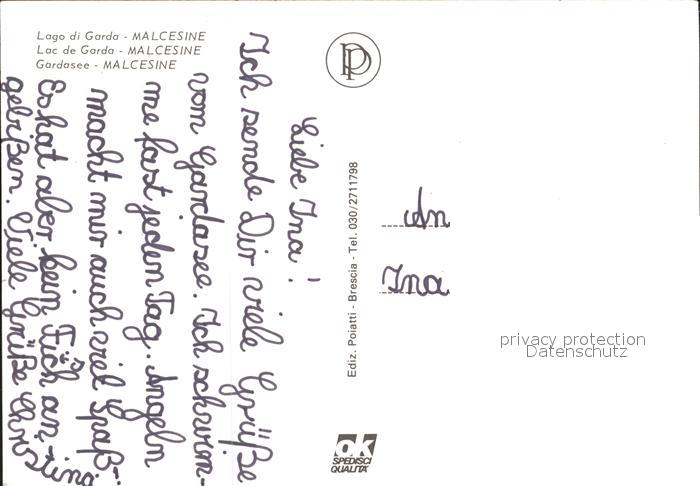 Lago di Garda - MALCESINE
Lac de Garda - MALCESINE
Gardasee - MALCESINE
Liebe Ina!
Ich sende Dir viele Grüße
vom Gardasee. Ich schwim-
me fast jeden Tag. Angeln
macht mir auch viel Spaß.
Es hat aber kein Fisch an-
gebißen. Viele Grüße Christina
Ediz. Poiatti - Brescia - Tel. 030/2711798
An
Ina
privacy protection
Datenschutz
ok
SPEDISCI
QUALITA'